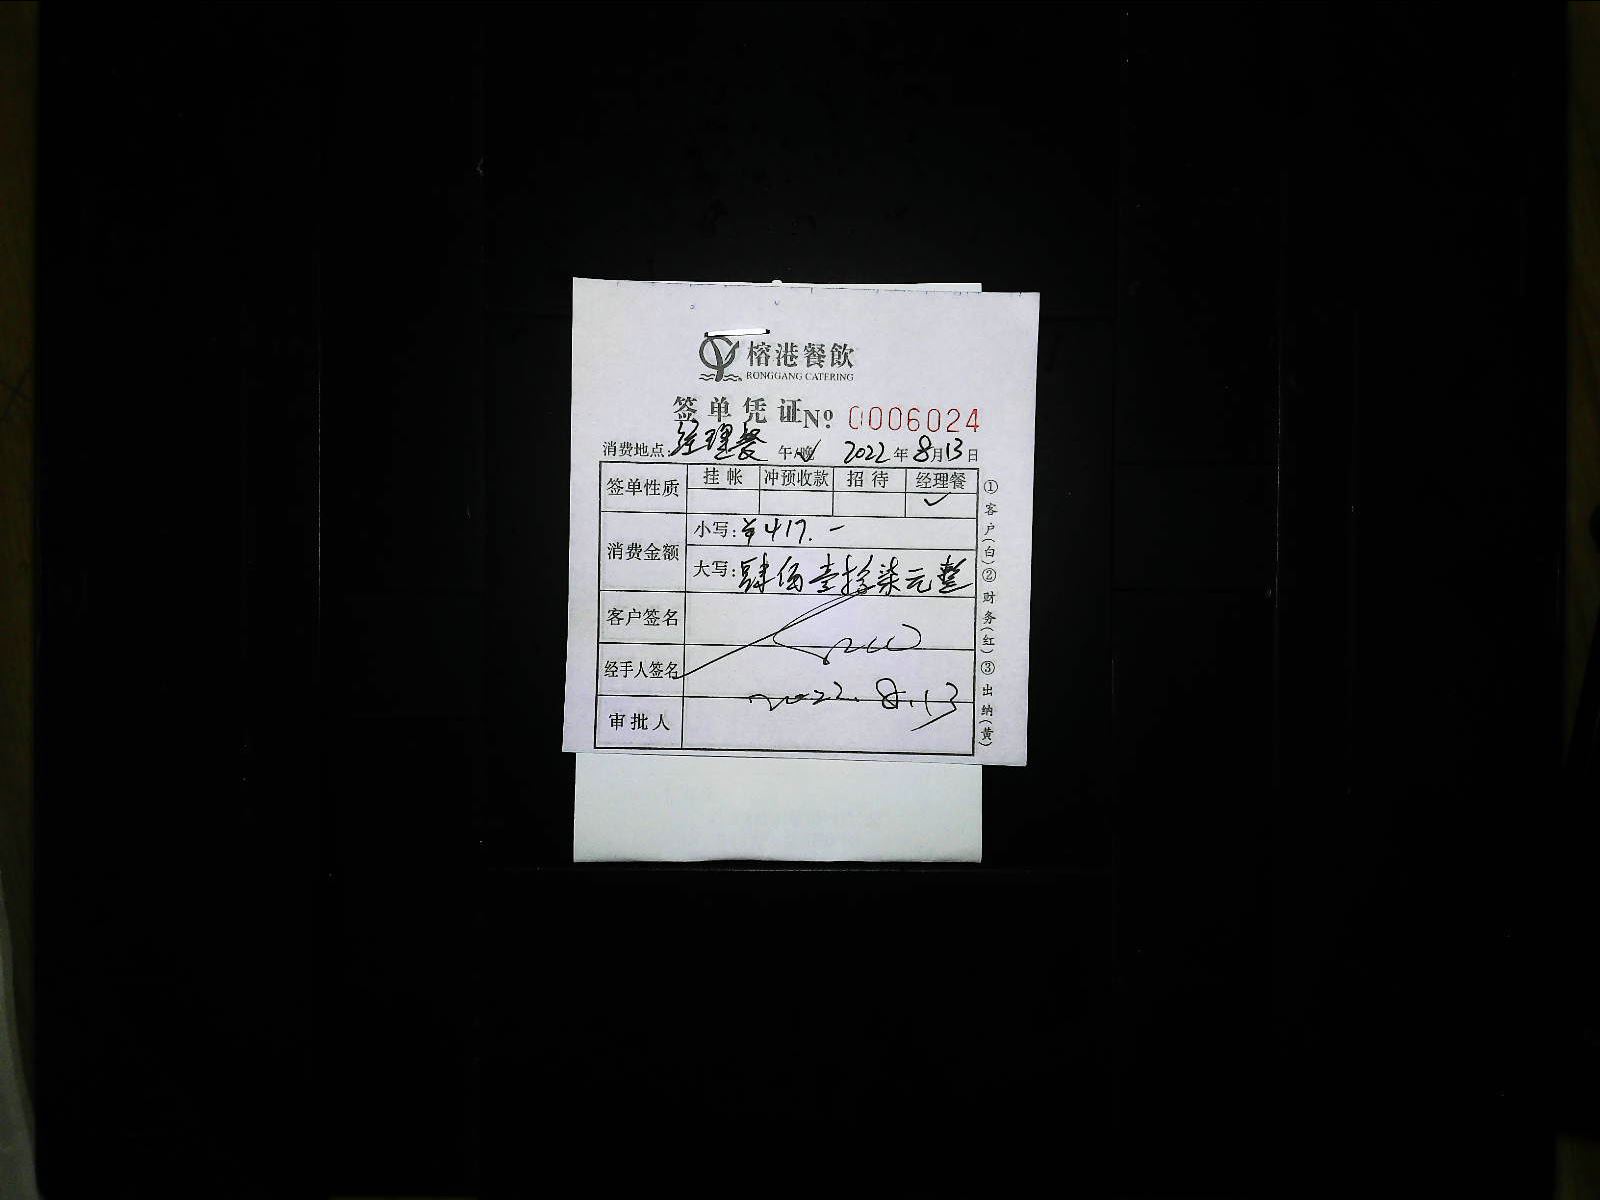 榕港餐飲
RONGGANG CATERING
签单凭证 No. 0006024
消费地点:经理餐 午/晚✓ 2022年8月13日
签单性质 挂帐 冲预收款 招待 经理餐
✓
消费金额 小写:¥417.一
大写:肆佰壹拾柒元整
客户签名
经手人签名
2022.8.13
审批人
①客户(白)②财务(红)③出纳(黄)